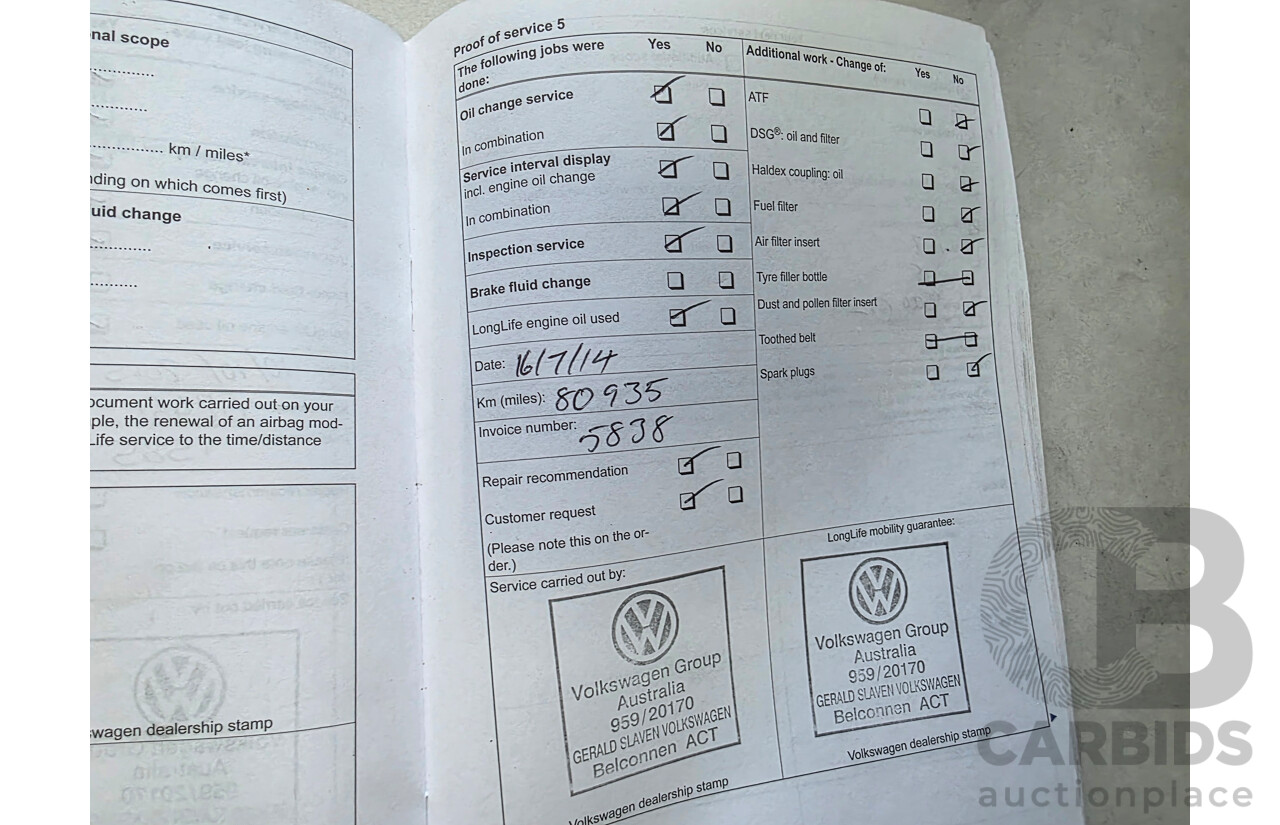 nal scope
km / miles*
nding on which comes first)
uid change
ocument work carried out on your
ple, the renewal of an airbag mod-
Life service to the time/distance
swagen dealership stamp
Proof of service 5
The following jobs were done: Yes No
Oil change service
In combination
Service interval display
incl. engine oil change
In combination
Inspection service
Brake fluid change
LongLife engine oil used
Date: 16/7/14
Km (miles): 80935
Invoice number: 5838
Repair recommendation
Customer request
(Please note this on the or-
der.)
Service carried out by:
Volkswagen Group
Australia
959/20170
GERALD SLAVEN VOLKSWAGEN
Belconnen ACT
Volkswagen dealership stamp
Additional work - Change of: Yes No
ATF
DSG®: oil and filter
Haldex coupling: oil
Fuel filter
Air filter insert
Tyre filler bottle
Dust and pollen filter insert
Toothed belt
Spark plugs
LongLife mobility guarantee:
Volkswagen Group
Australia
959/20170
GERALD SLAVEN VOLKSWAGEN
Belconnen ACT
Volkswagen dealership stamp
CARBIDS
auctionplace